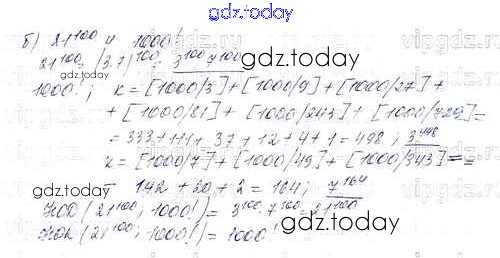 gdz.today
б) 21^100 и 1000!
21^100 = (3·7)^100 = 3^100 7^100
gdz.today
1000!; k = [1000/3] + [1000/9] + [1000/27] +
+ [1000/81] + [1000/243] + [1000/729] =
= 333 + 111 + 37 + 12 + 4 + 1 = 498; 3^498
k = [1000/7] + [1000/49] + [1000/343] = =
gdz.today
= 142 + 20 + 2 = 164; 7^164
НОД (21^100; 1000!) = 3^100 · 7^100 = 21^100
gdz.today
НОК (21^100; 1000!) = 1000!